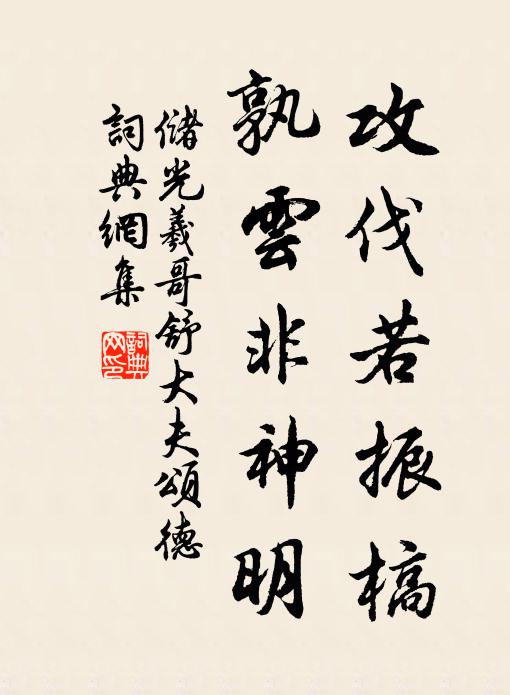 攻伐若振槁
孰雲非神明
儲光羲哥舒大夫頌德
詞典網集
詞典網印